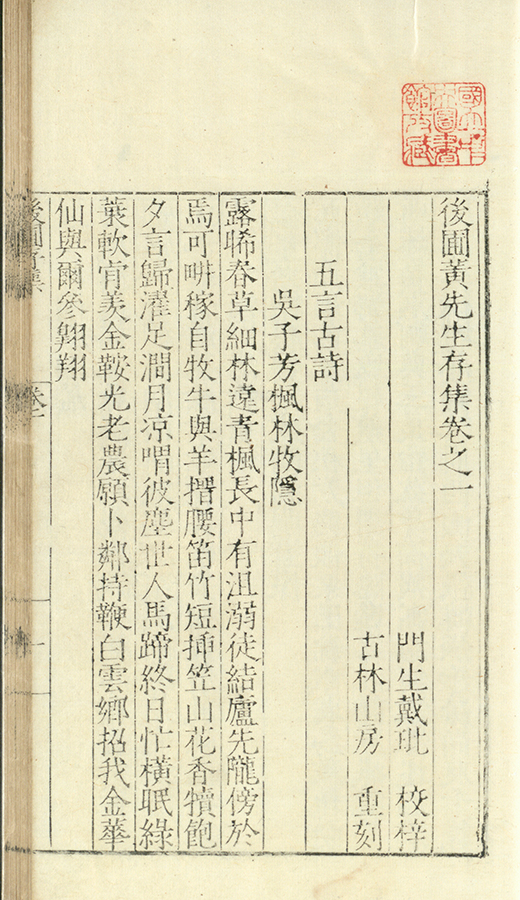 後圃黃先生存集卷之一
門生戴玭 校梓
古林山房 重刻
五言古詩
吳子芳楓林牧隱
露晞春草細林遠青楓長中有沮溺徒結廬先隴傍於
焉可耕稼自牧牛與羊揩腰笛竹短揷笠山花香犢飽
夕言歸濯足澗月凉喟彼塵世人馬蹄終日忙橫眠綠
蓑軟肯羡金鞍光老農願卜鄰持鞭白雲鄉招我金華
仙與爾參翺翔
卷一
一